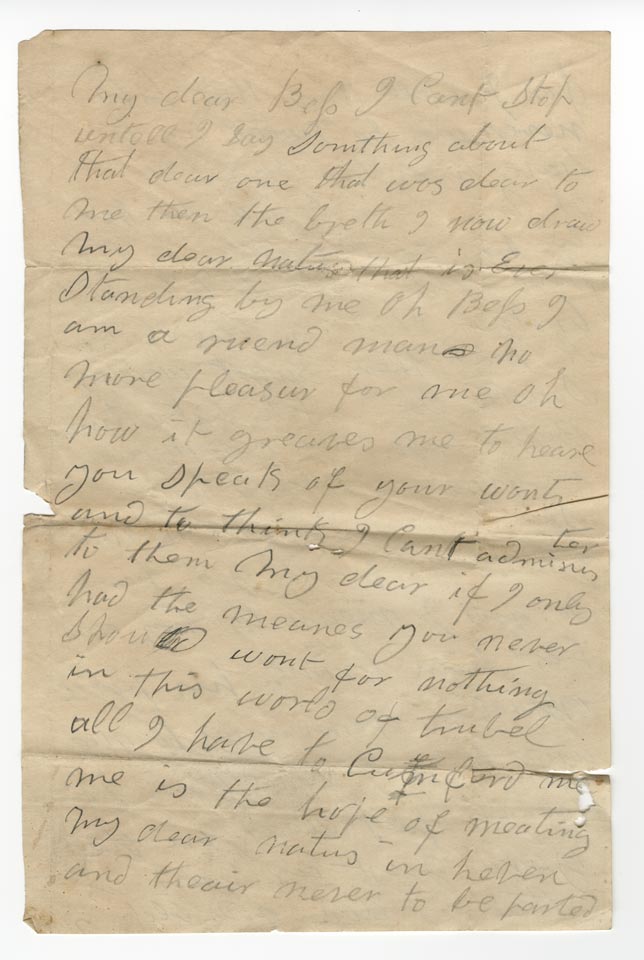 My dear Bess I Cant Stop
untill I say Somthing about
that dear one that was dear to
me then the breth I now draw
My dear natus that is Ever
Standing by me Oh Bess I
am a ruiend man no
more pleasur for me Oh
how it greaves me to heare
you speak of your wonts
and to think I Cant adminis
ter
to them My dear if I only
had the meanes you never
Should wont for nothing
in this world of trubel
all I have to Cumford me
me is the hope of meating
My dear natus in heven
and theair never to be parted